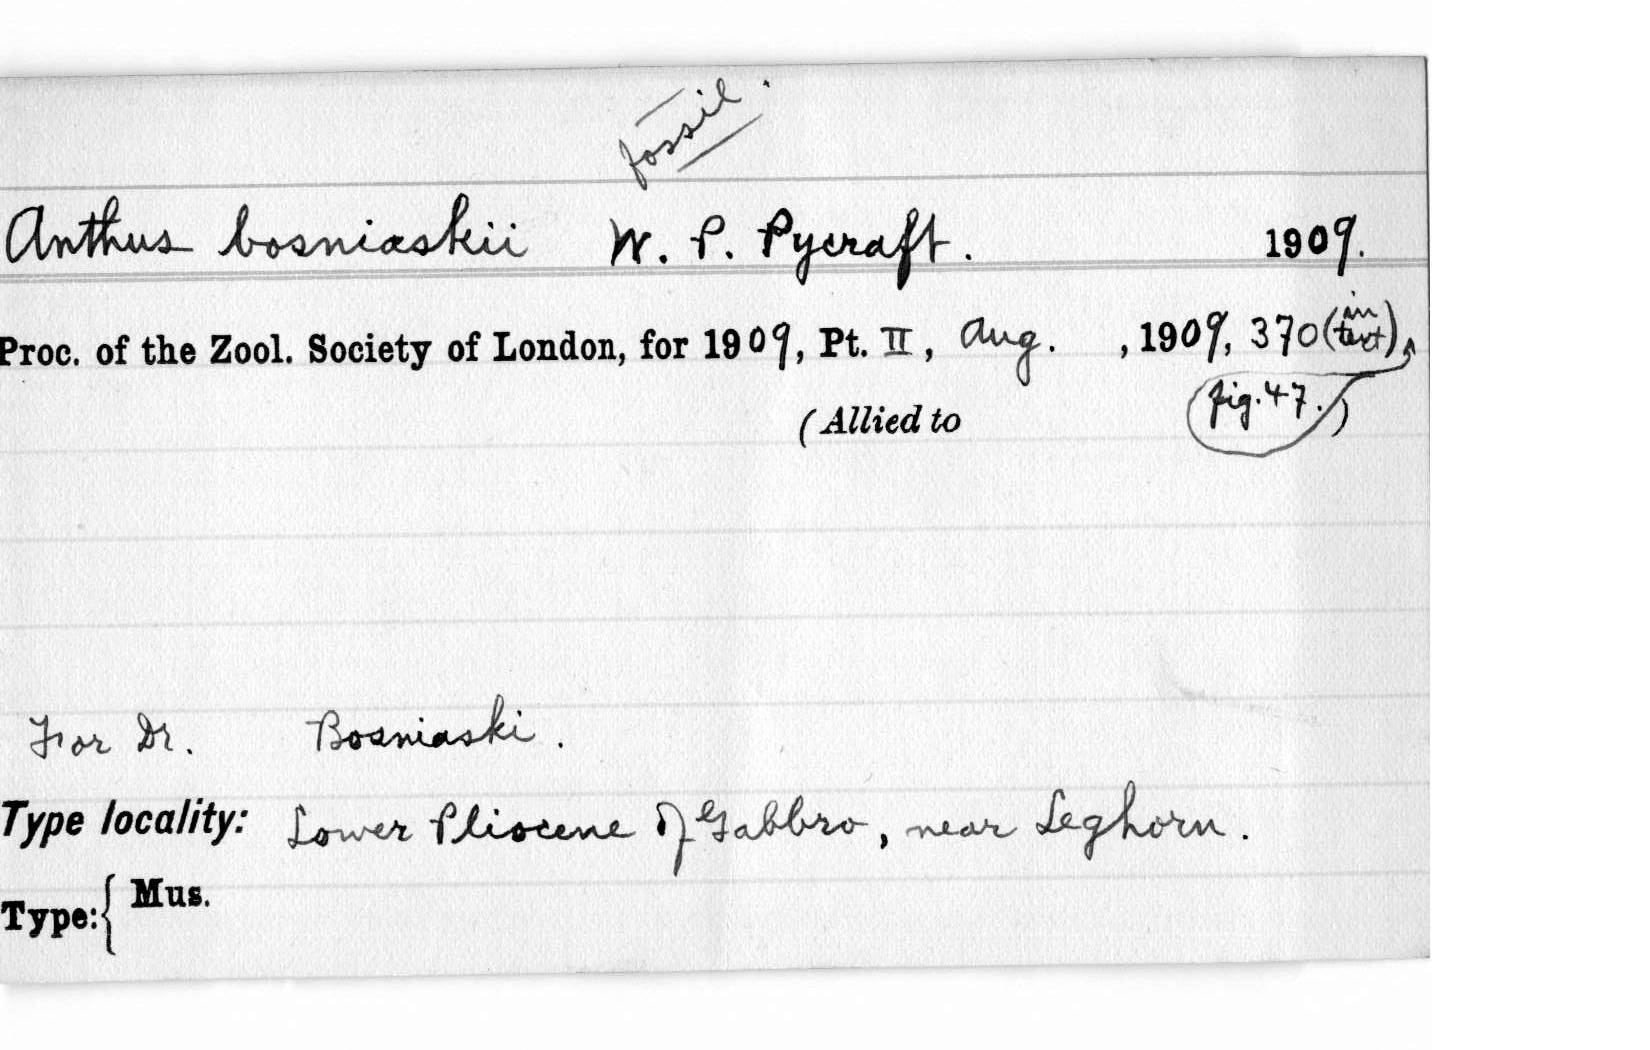 fossil.
Anthus bosniaskii W. P. Pycraft. 1909.
Proc. of the Zool. Society of London, for 1909, Pt. II, Aug. , 1909, 370 (in text),
fig. 47.
(Allied to )
For Dr. Bosniaski.
Type locality: Lower Pliocene of Gabbro, near Leghorn.
Type: { Mus.